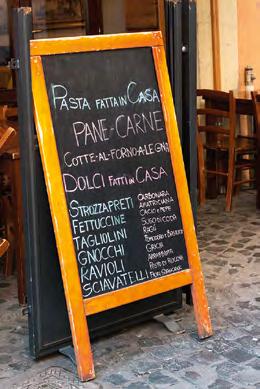 PASTA FATTA IN CASA
PANE-CARNE
COTTE-AL-FORNO-A-LEGNA
DOLCI FATTI IN CASA
STROZZAPRETI
FETTUCCINE
TAGLIOLINI
GNOCCHI
RAVIOLI
SCIAVATELLI
CARBONARA
AMATRICIANA
CACIO e PEPE
SUGO DI CODA
RAGÙ
POMODORO e BASILICO
GRICIA
ARRABBIATA